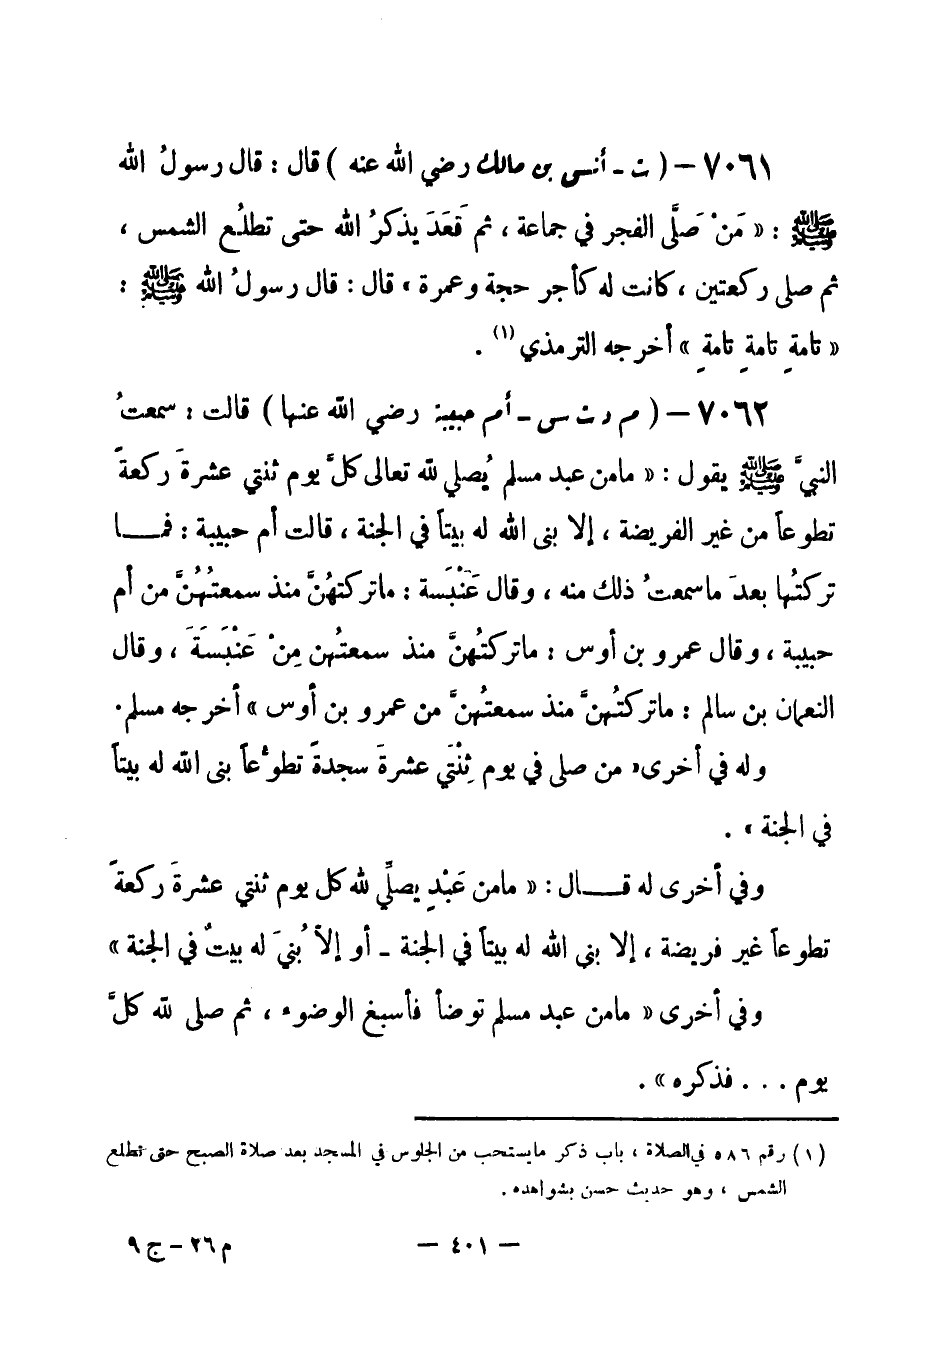 ٧٠٦١ – ( ت - أنس بن مالك رضي الله عنه ) قال : قال رسولُ الله
ﷺ : « مَنْ صَلَّى الفجر في جماعة ، ثم قَعَدَ يذكرُ الله حتى تطلُع الشمس ،
ثم صلى ركعتين ، كانت له كأجر حجة وعمرة » قال : قال رسولُ الله ﷺ :
« تامةٍ تامةٍ تامةٍ » أخرجه الترمذي (١) .
٧٠٦٢ – ( م د ت س - أم حبيبة رضي الله عنها ) قالت : سمعتُ
النبيَّ ﷺ يقول : « مامن عبد مسلم يُصلي لله تعالى كلَّ يوم ثنتي عشرةَ ركعةً
تطوعاً من غير الفريضة ، إلا بنى الله له بيتاً في الجنة ، قالت أم حبيبة : فمـــا
تركتُها بعدَ ماسمعتُ ذلك منه ، وقال عَنْبَسة : ماتركتهُنَّ منذ سمعتُهُنَّ من أم
حبيبة ، وقال عمرو بن أوس : ماتركتُهنَّ منذ سمعتُهن مِنْ عَنْبَسَةَ ، وقال
النعمان بن سالم : ماتركتُهنَّ منذ سمعتُهنَّ من عمرو بن أوس » أخرجه مسلم.
وله في أخرى « من صلى في يوم ثِنْتَي عشرةَ سجدةً تطوُّعاً بنى الله له بيتاً
في الجنة » .
وفي أخرى له قـــال : « مامن عَبْدٍ يصلِّي لله كل يوم ثنتي عشرةَ ركعةً
تطوعاً غير فريضة ، إلا بنى الله له بيتاً في الجنة - أو إلا بُنيَ له بيتٌ في الجنة »
وفي أخرى « مامن عبد مسلم توضأ فأسبغ الوضوء ، ثم صلى لله كلَّ
يوم . . . فذكره » .
(١) رقم ٥٨٦ في الصلاة ، باب ذكر مايستحب من الجلوس في المسجد بعد صلاة الصبح حتى تطلع
الشمس ، وهو حديث حسن بشواهده .
– ٤٠١ –
م ٢٦ – ج ٩